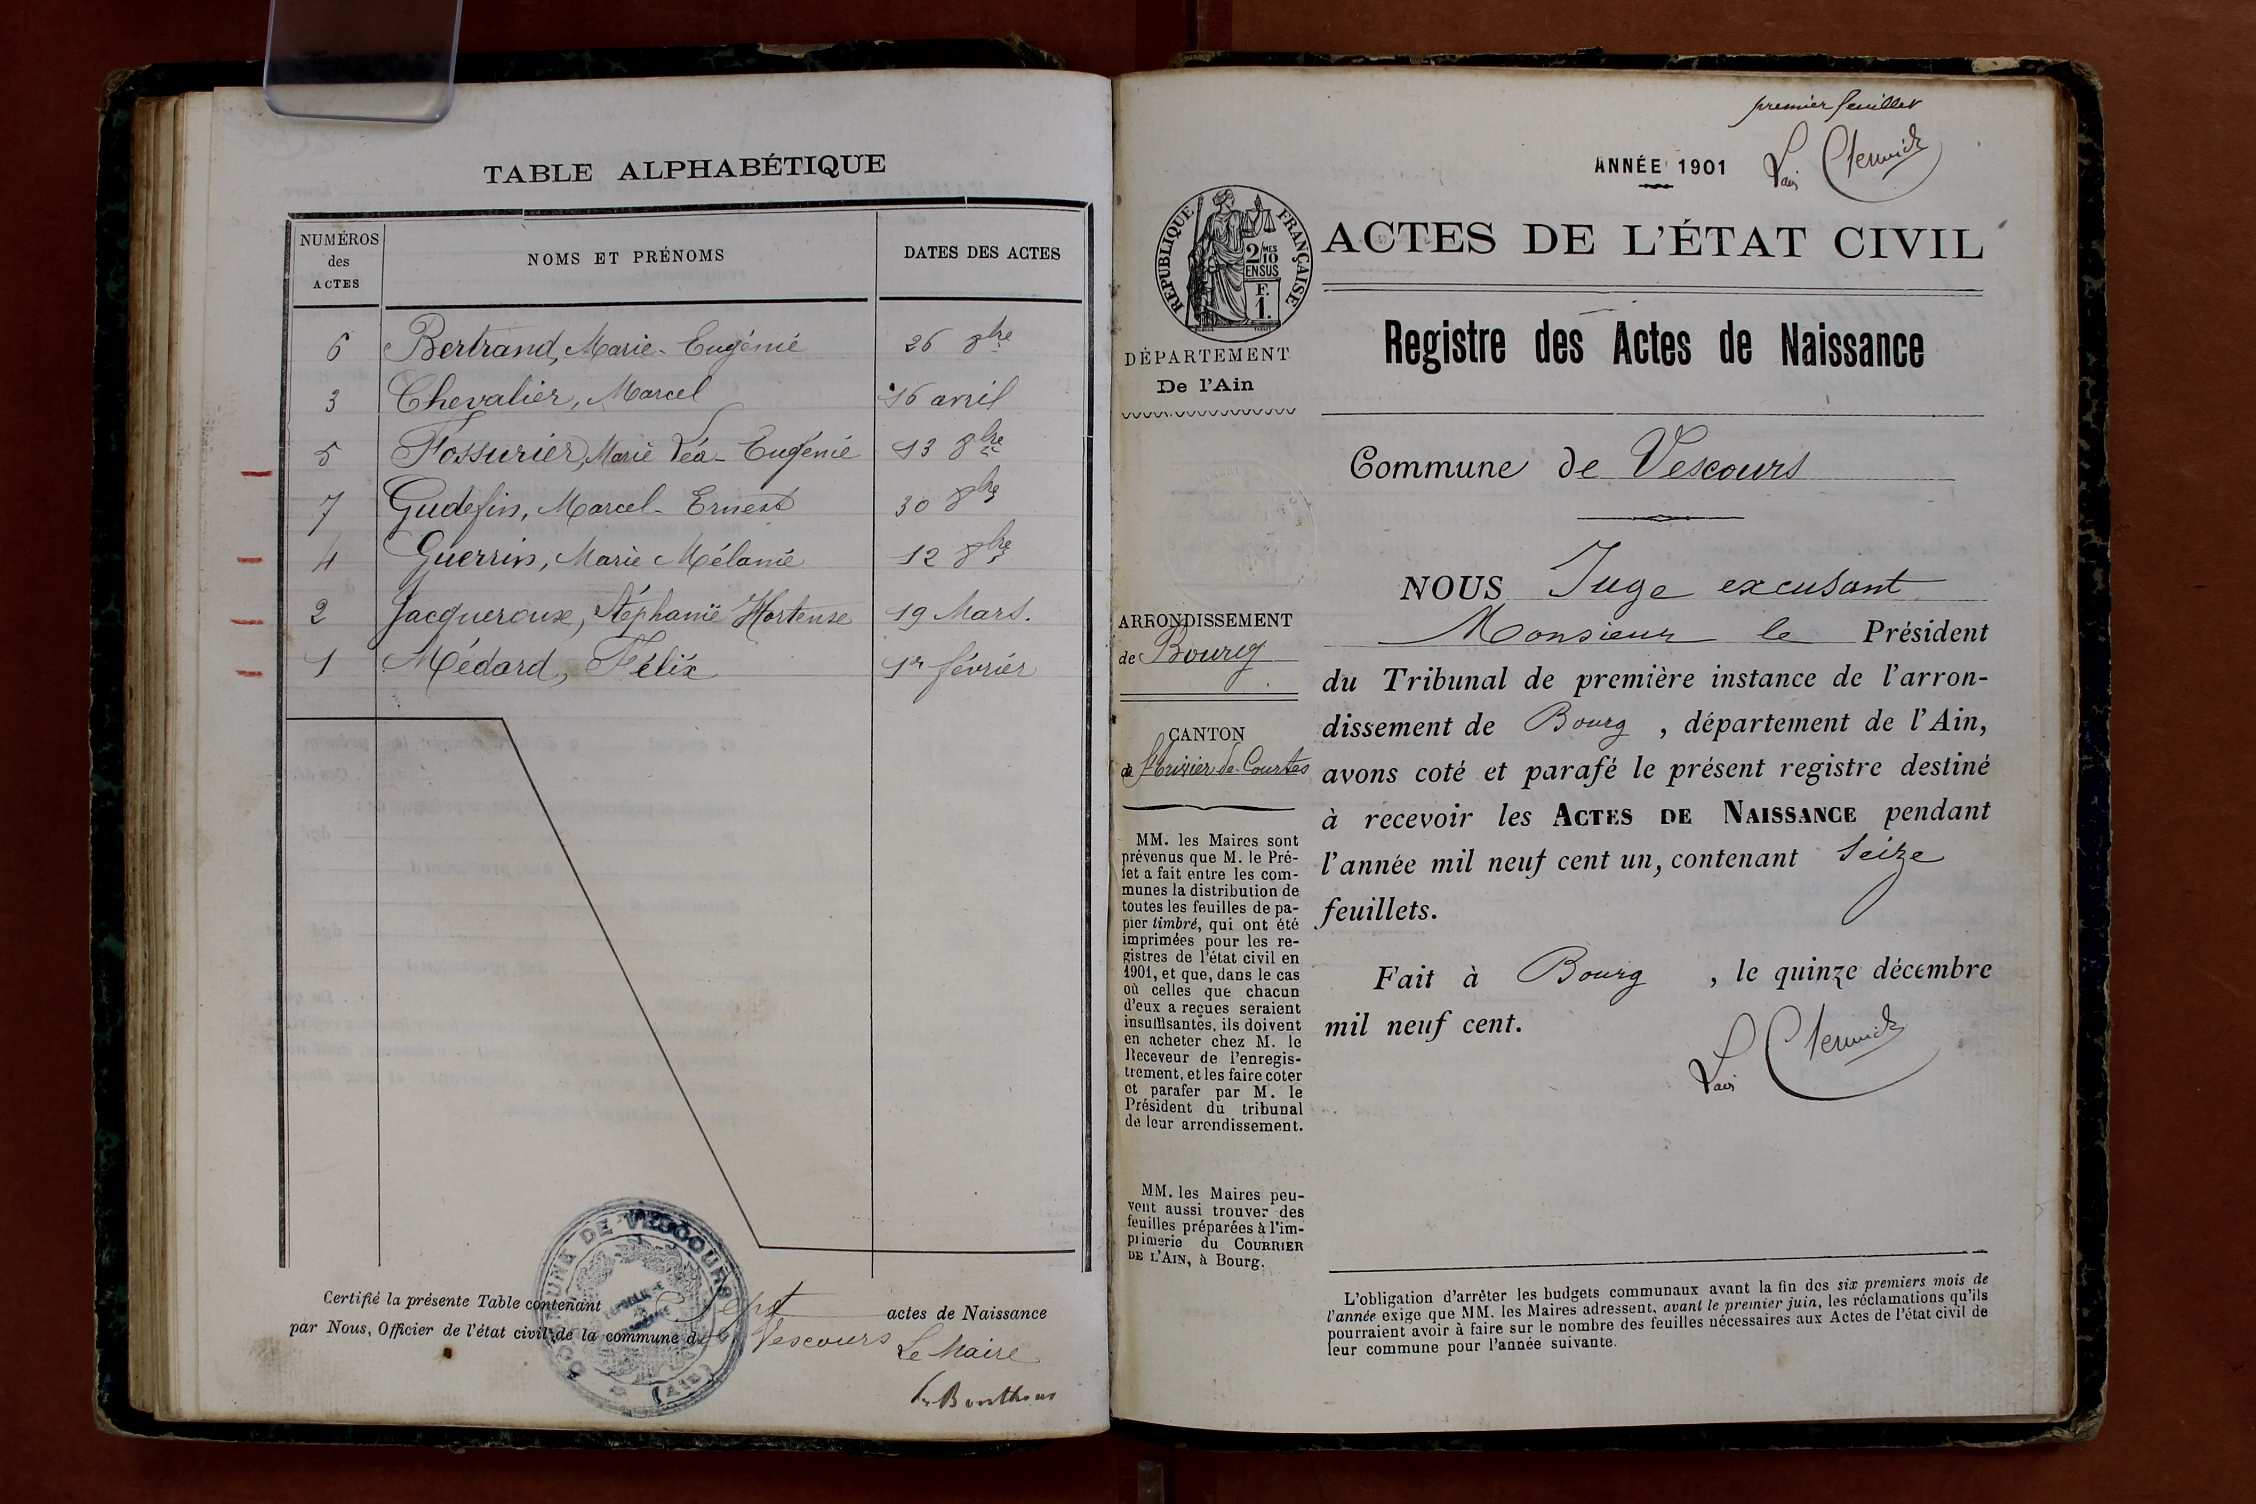 TABLE ALPHABÉTIQUE
NUMÉROS des ACTES NOMS ET PRÉNOMS DATES DES ACTES
6 Bertrand, Marie-Eugénie 26 8bre
3 Chevalier, Marcel 16 avril
5 Fossurier, Marie Léa-Eugénie 13 8bre
7 Gudefin, Marcel-Ernest 30 8bre
4 Guerrin, Marie Mélanie 12 8bre
2 Jacqueroux, Stéphanie Hortense 19 Mars.
1 Médard, Félix 1er février
COMMUNE DE VESCOURS
(AIN)
Certifié la présente Table contenant Sept actes de Naissance
par Nous, Officier de l'état civil de la commune de Vescours
Le Maire
premier feuillet
ANNÉE 1901
RÉPUBLIQUE FRANÇAISE
2/10 MES
EN SUS
F.
1.
ACTES DE L'ÉTAT CIVIL
Registre des Actes de Naissance
DÉPARTEMENT
De l'Ain
Commune de Vescours
ARRONDISSEMENT
de Bourg
CANTON
de St Trivier-de-Courtes
MM. les Maires sont
prévenus que M. le Pré-
fet a fait entre les com-
munes la distribution de
toutes les feuilles de pa-
pier timbré, qui ont été
imprimées pour les re-
gistres de l'état civil en
1901, et que, dans le cas
où celles que chacun
d'eux a reçues seraient
insuffisantes, ils doivent
en acheter chez M. le
Receveur de l'enregis-
trement, et les faire coter
et parafer par M. le
Président du tribunal
de leur arrondissement.
MM. les Maires peu-
vent aussi trouver des
feuilles préparées à l'im-
primerie du COURRIER
DE L'AIN, à Bourg.
NOUS Juge excusant
Monsieur le Président
du Tribunal de première instance de l'arron-
dissement de Bourg, département de l'Ain,
avons coté et parafé le présent registre destiné
à recevoir les ACTES DE NAISSANCE pendant
l'année mil neuf cent un, contenant seize
feuillets.
Fait à Bourg, le quinze décembre
mil neuf cent.
L'obligation d'arrêter les budgets communaux avant la fin des six premiers mois de
l'année exige que MM. les Maires adressent, avant le premier juin, les réclamations qu'ils
pourraient avoir à faire sur le nombre des feuilles nécessaires aux Actes de l'état civil de
leur commune pour l'année suivante.